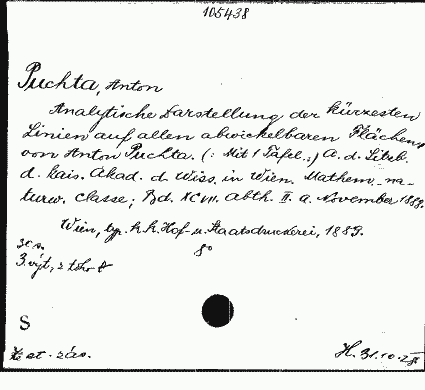 105438
Puchta, Anton
Analytische Darstellung der kürzesten
Linien auf allen abwickelbaren Flächen
von Anton Puchta. (: Mit 1 Tafel. :) A. d. Sitzb.
d. kais. Akad. d. Wiss. in Wien. Mathem.-na-
turw. Classe; Bd. XCVII. abth. II. a. November 1888.
Wien, typ. k. k. Hof- u. Staatsdruckerei, 1889.
30 s. 8°
3. výt. z toho
S
st. zás. H. 31.10.